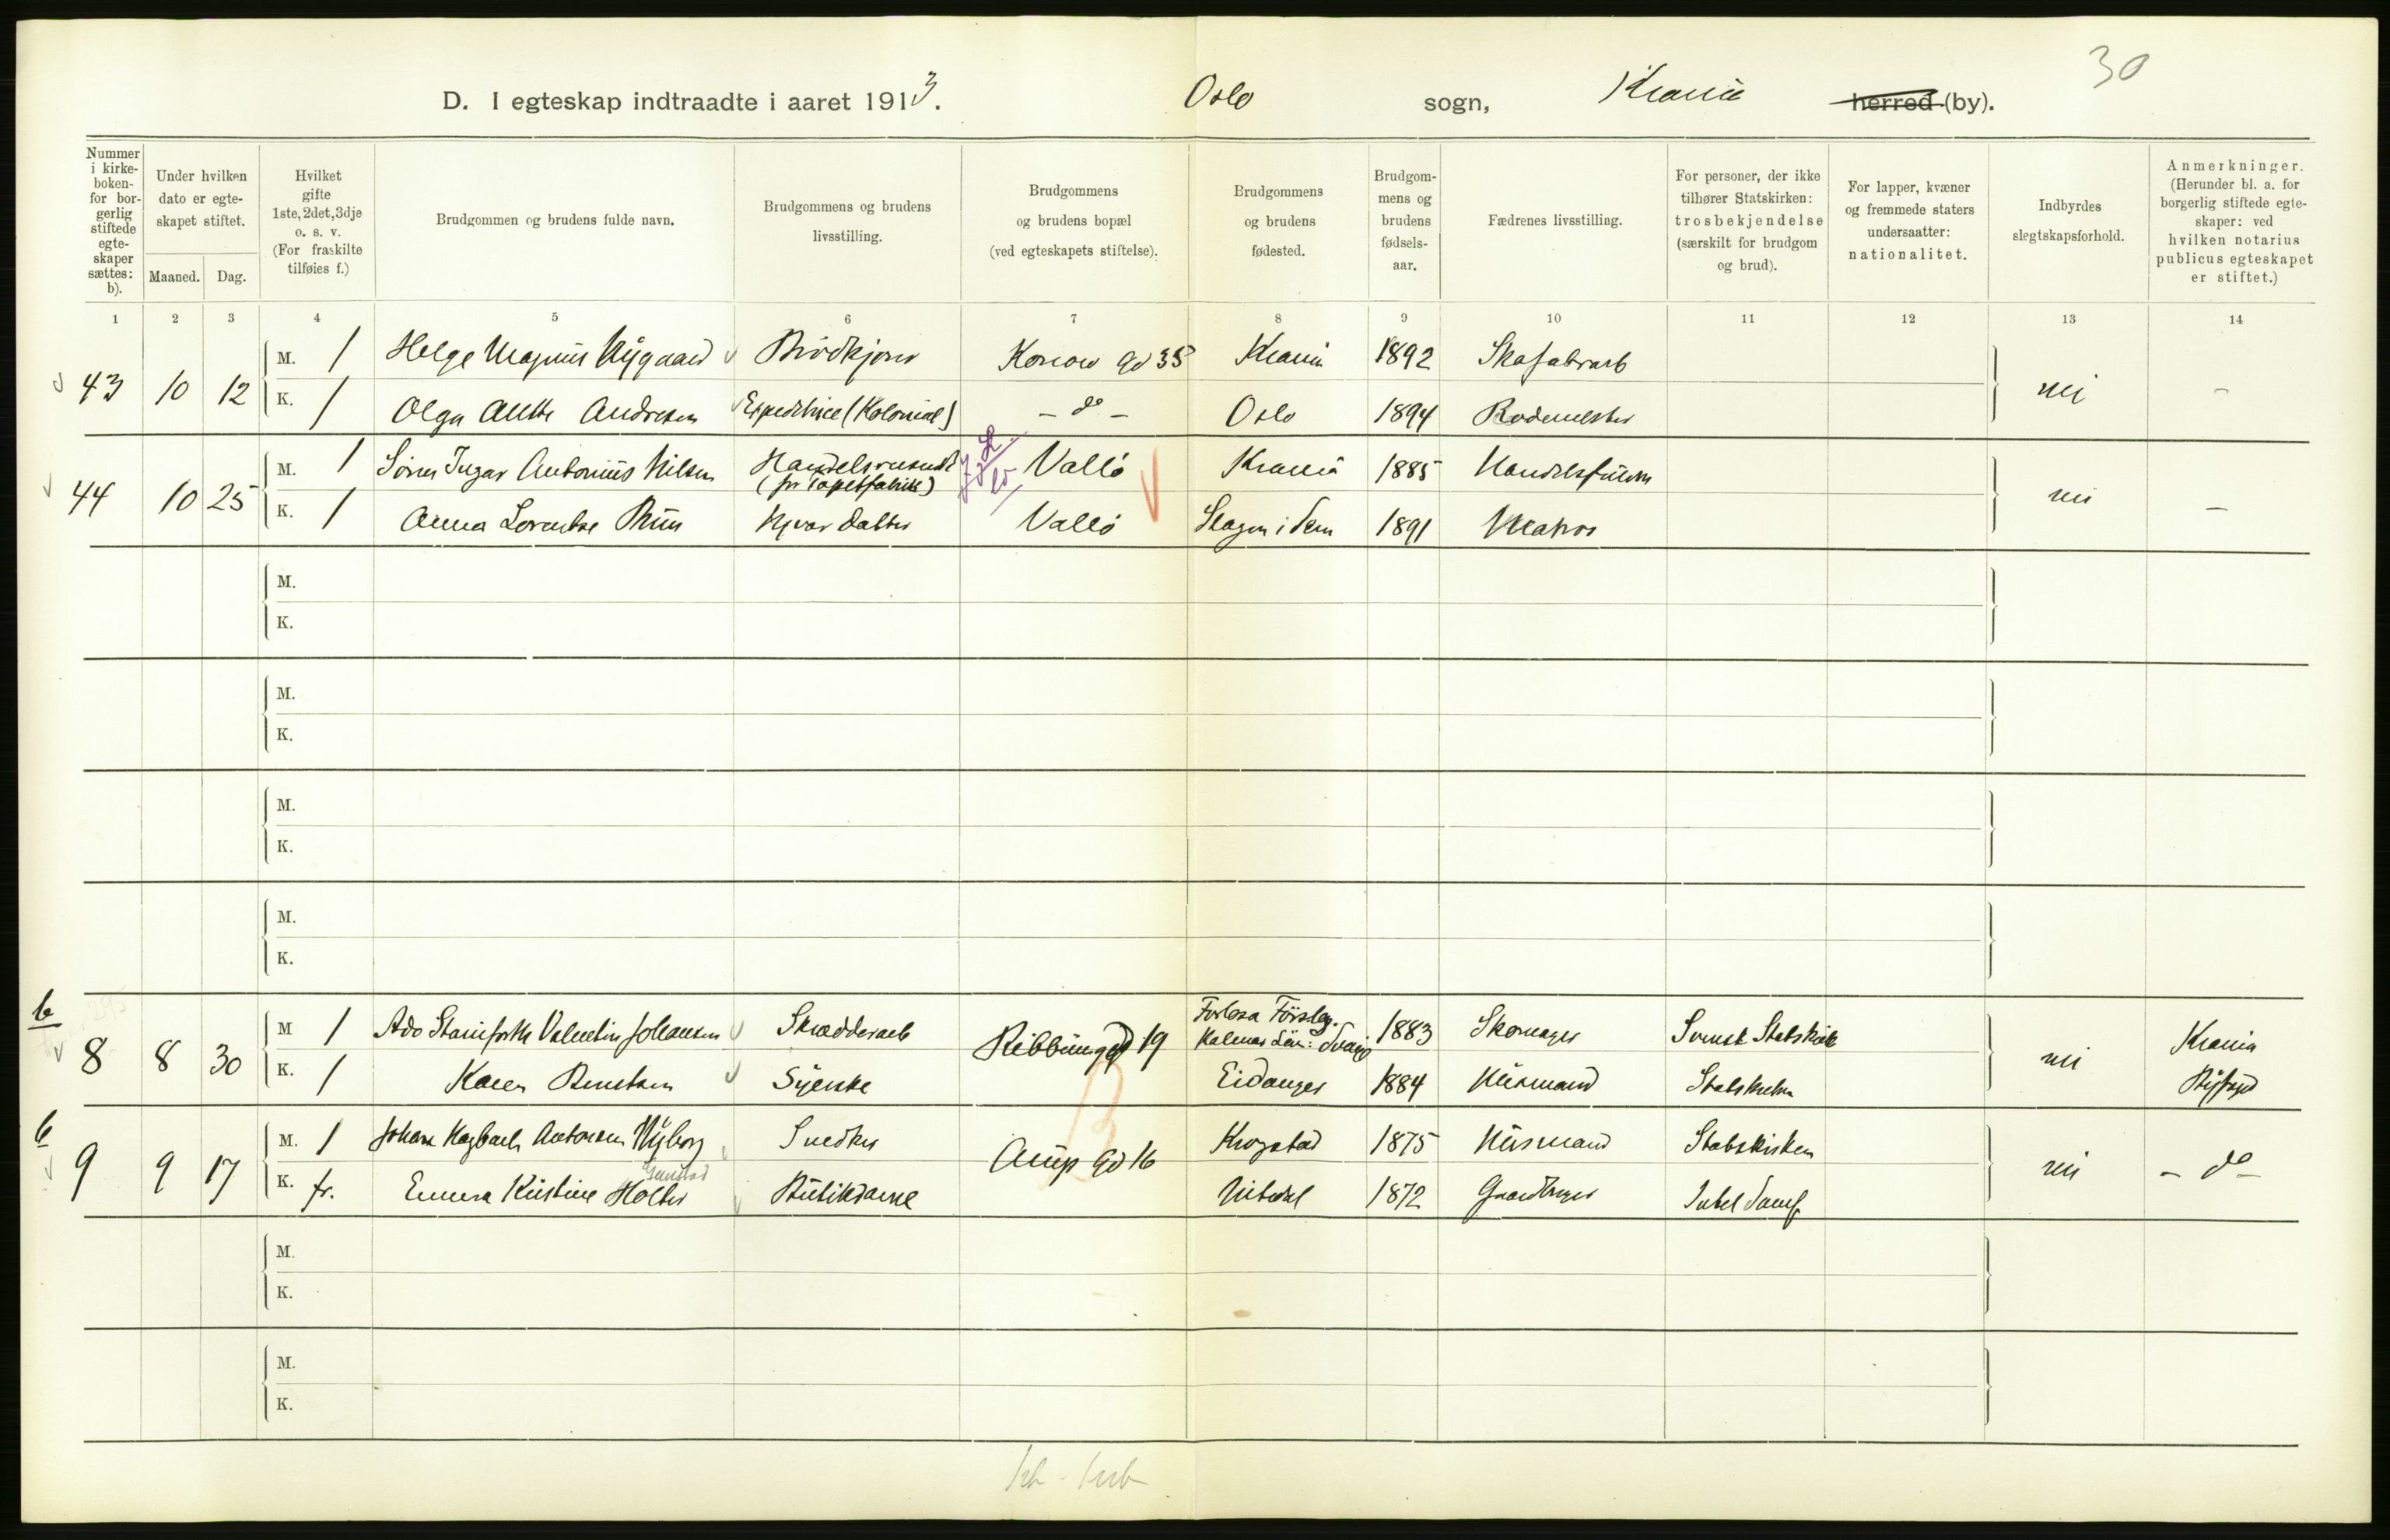 30
D. I egteskap indtraadte i aaret 1913. Oslo sogn, Krania herred (by).
Nummer i kirke-boken- for bor-gerlig stiftede egte-skaper sættes: b).
Under hvilken dato er egte-skapet stiftet.
Maaned. Dag.
Hvilket gifte 1ste, 2det, 3dje o. s. v. (For fraskilte tilføies f.)
Brudgommen og brudens fulde navn.
Brudgommens og brudens livsstilling.
Brudgommens og brudens bopæl (ved egteskapets stiftelse).
Brudgommens og brudens fødested.
Brudgom-mens og brudens fødsels-aar.
Fædrenes livsstilling.
For personer, der ikke tilhører Statskirken: trosbekjendelse (særskilt for brudgom og brud).
For lapper, kvæner og fremmede staters undersaatter: nationalitet.
Indbyrdes slegtskapsforhold.
Anmerkninger. (Herunder bl. a. for borgerlig stiftede egte-skaper: ved hvilken notarius publicus egteskapet er stiftet.)
1 2 3 4 5 6 7 8 9 10 11 12 13 14
43 10 12 M. 1 Helge Magnus Nygaard Brödkjører Konow gd 35 Krania 1892 Skofabrarb nei –
K. 1 Olga Andresen Expeditrice (Kolonial) – do – Oslo 1894 Rodemester
44 10 25 M. 1 Søren Ingar Antonius Nilsen Handelsreisende (for Tapetfabrik) Vallö Krania 1885 Handelsfuldm nei –
K. 1 Anna Lorentse Bruu Hjvar datter Vallö Slagen i Sem 1891 Matros
M.
K.
M.
K.
M.
K.
M.
K.
b
8 8 30 M 1 Ado Valentin Johansen Skrædderarb Ribbungd 19 Kalmar Län: Sverig 1883 Skomager Svensk Statskirke nei Krania Byfogd
K. 1 Karen Berntsen Syerske Eidanger 1884 Husmand Statskirken
b
9 9 17 M. 1 Johan Hagbart Antonsen Nyborg Snedker Amp gd 16 Krogstad 1875 Husmand Statskirken nei – do –
K. fr. Emma Kristine Holter Butikdame Nitedal 1872 Gaardbruger
M.
K.
M.
K.